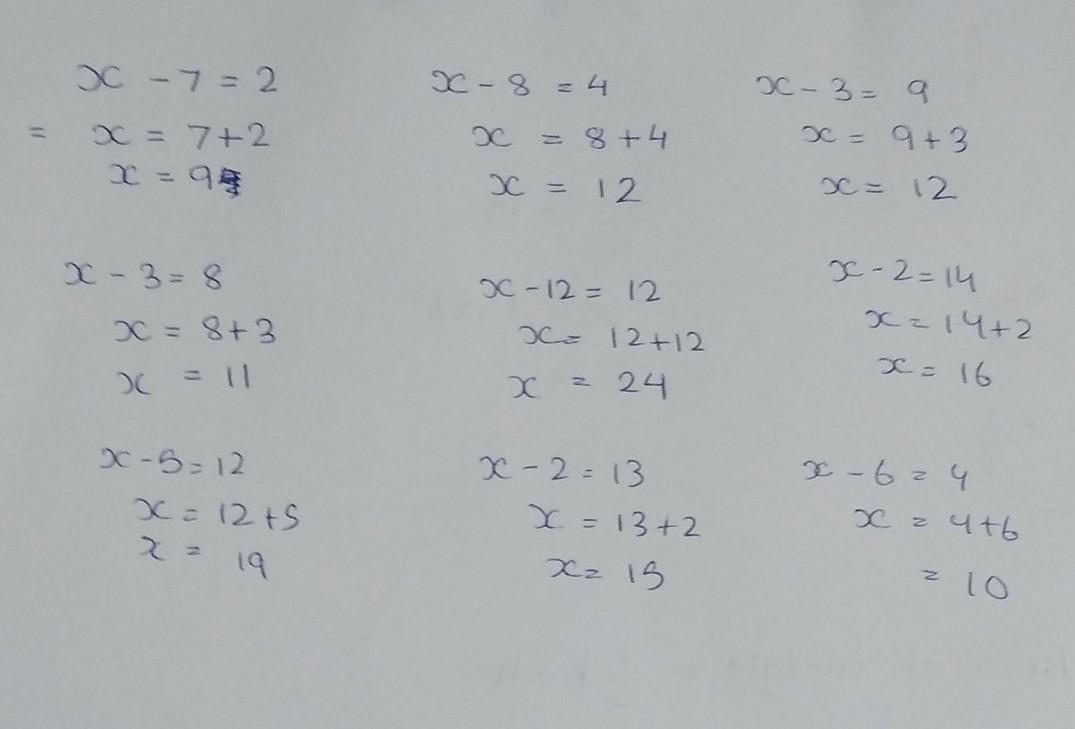 x - 7 = 2
= x = 7+2
x = 9
x - 8 = 4
x = 8+4
x = 12
x - 3 = 9
x = 9+3
x = 12
x - 3 = 8
x = 8+3
x = 11
x - 12 = 12
x = 12+12
x = 24
x - 2 = 14
x = 14+2
x = 16
x - 5 = 12
x = 12+5
x = 19
x - 2 = 13
x = 13+2
x = 15
x - 6 = 4
x = 4+6
= 10